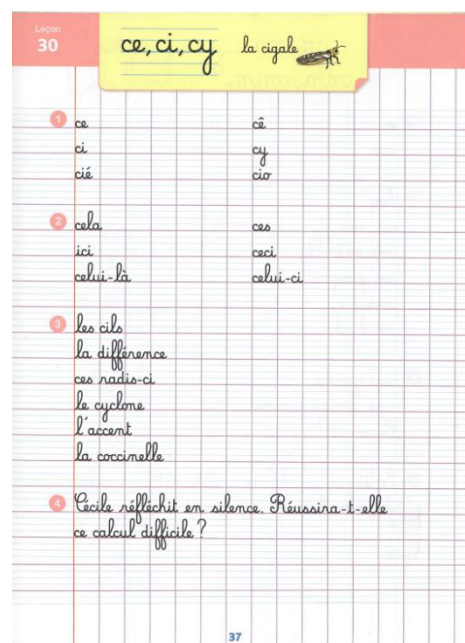 Leçon
30
ce, ci, cy la cigale
1 ce cê
ci cy
cié cio
2 cela ces
ici ceci
celui-là celui-ci
3 les cils
la différence
ces radis-ci
le cyclone
l'accent
la coccinelle
4 Cécile réfléchit en silence. Réussira-t-elle
ce calcul difficile ?
37